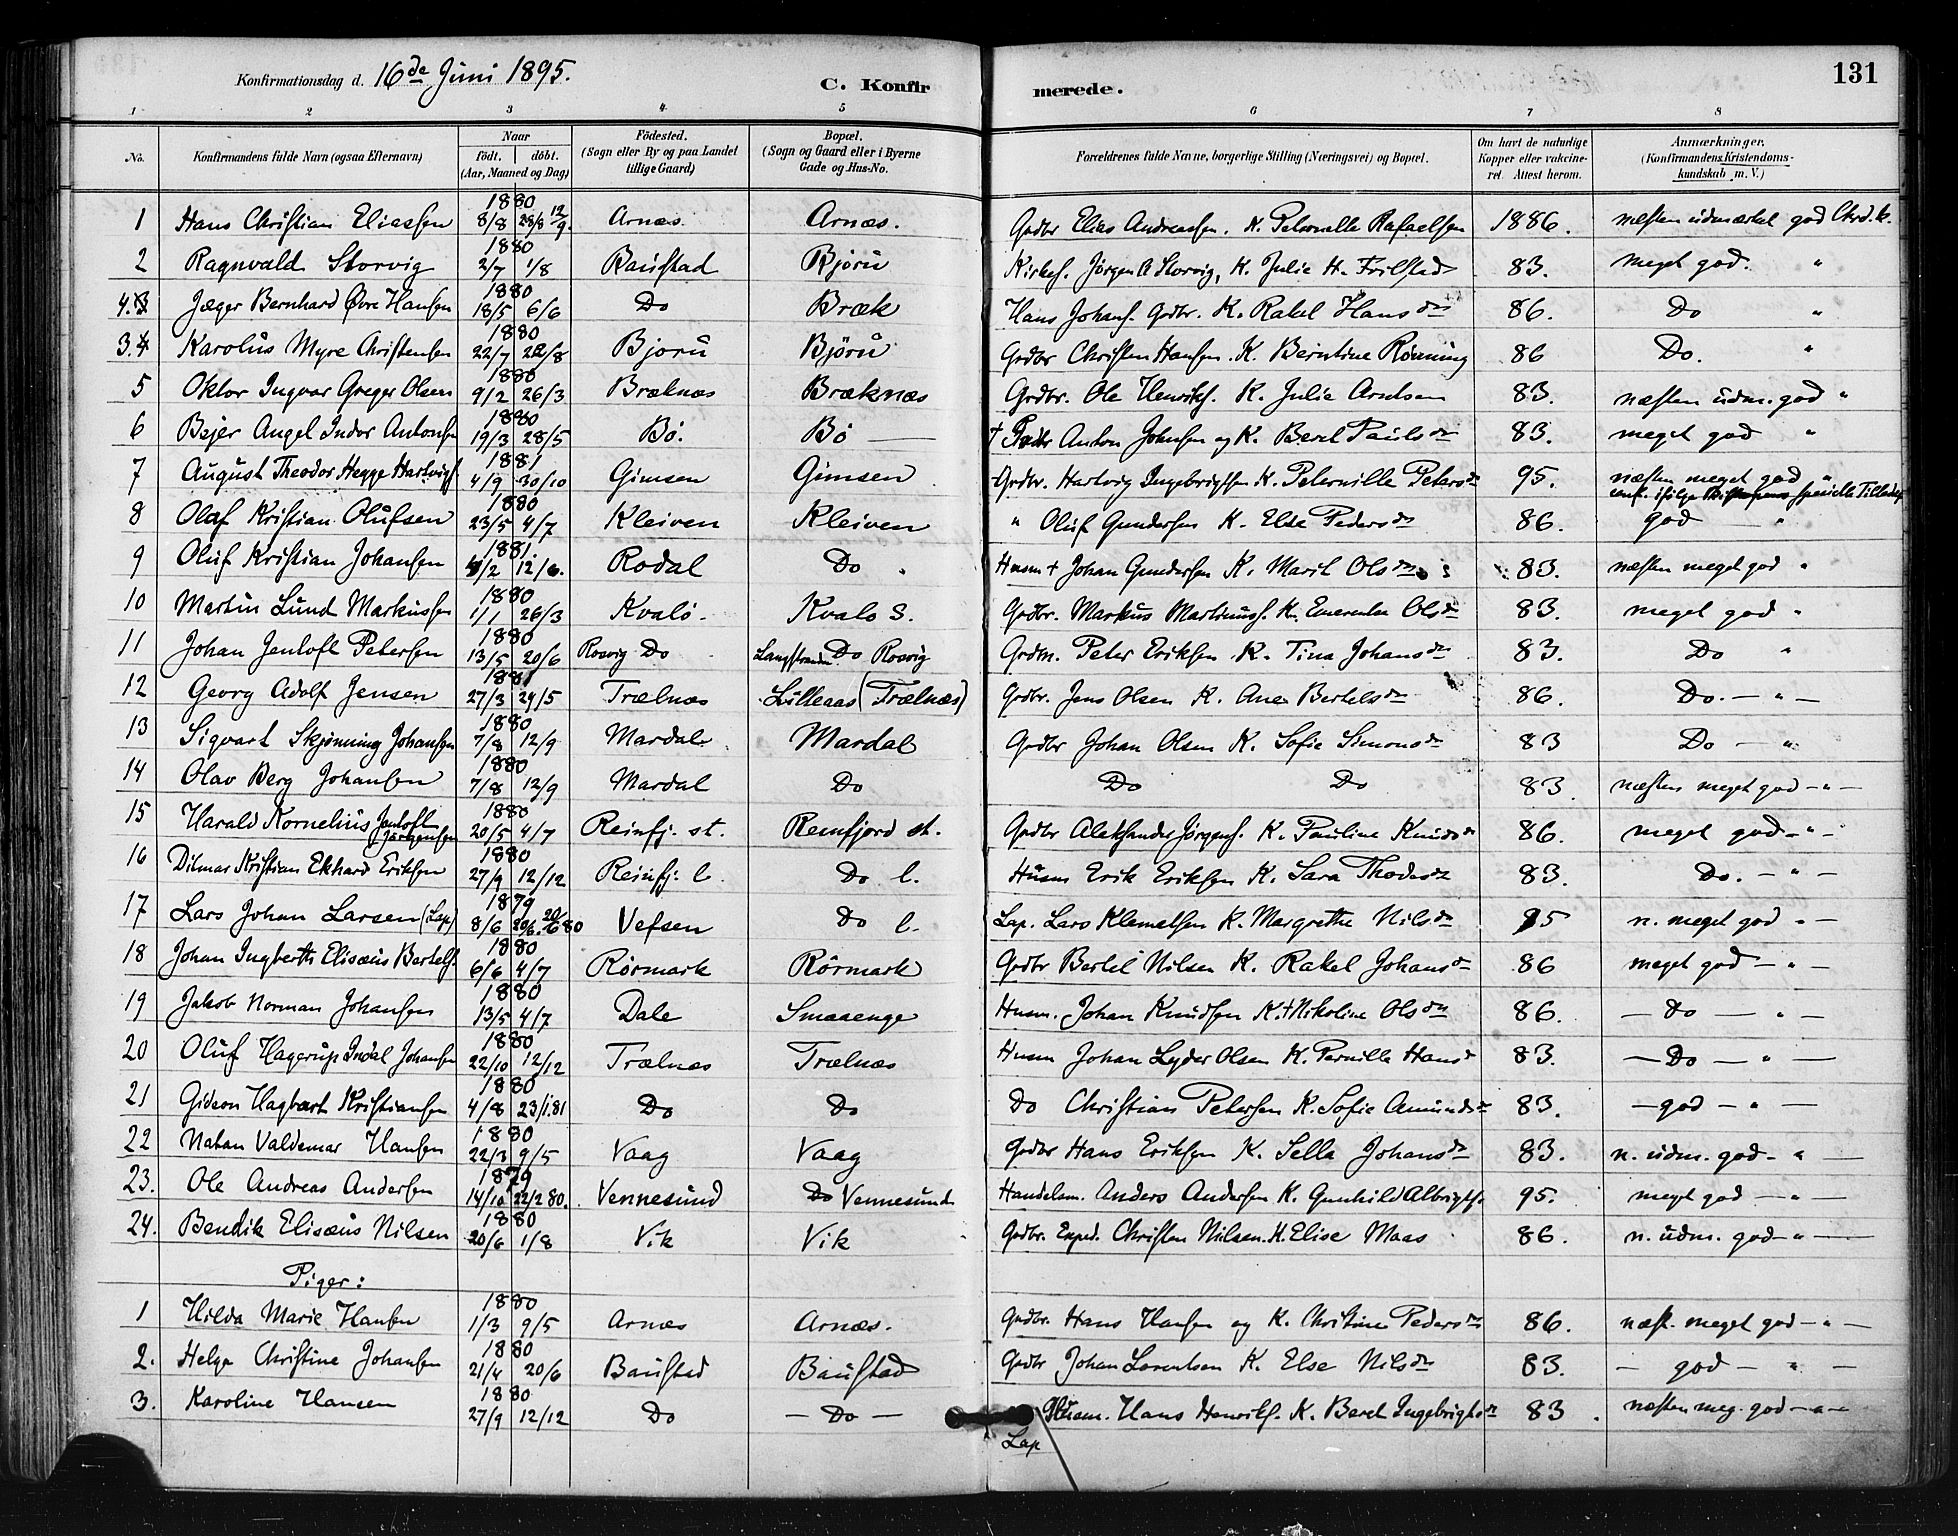 131
Konfirmationsdag d. 16de Juni 1895. C. Konfirmerede.
1 2 3 4 5 6 7 8
No. Konfirmandens fulde Navn (ogsaa Efternavn) Naar født. døbt. (Aar, Maaned og Dag) Fødested. (Sogn eller By og paa Landet tillige Gaard) Bopæl. (Sogn og Gaard eller i Byerne Gade og Hus-No. Forældrenes fulde Navne, borgerlige Stilling (Næringsvei) og Bopæl. Om havt de naturlige Kopper eller vakcineret. Attest herom. Anmærkninger. (Konfirmandens Kristendomskundskab m. V.)
1 Hans Christian Eliassen 1880 8/8 28/8 12/9. Arnæs. Arnæs. Grdbr Elias Andreassen. K. Peternille Rafaelsen 1886. næsten udmærket god Chrd.k.
2 Ragnvald Storvig 1880 2/7 1/8 Baustad Bjøru Kirkes. Jørgen A Storvig, K. Julie H. Frilstad 83. meget god. "
4. Jæger Bernhard Øvre Hansen 1880 18/5 6/6 Do Bræk Hans Johans. Grdbr. K. Rakel Hansdtr 86. Do "
3. Karolus Myre Christensen 1880 22/7 22/8 Bjøru Bjøru Grdbr Christen Hansen. K. Berntine Rønning 86 Do. "
5 Oktor Ingvar Greger Olsen 1880 9/2 26/3 Bræknæs Bræknæs Grdbr. Ole Henriks. K. Julie Arntsen 83. næsten udm. god "
6 Bejer Angel Indor Antonsen 1880 19/3 28/5 Bø. Bø — † Grdbr Anton Johansen og K. Beret Paulsdtr 83. meget god "
7 August Theodor Hegge Hartvigs. 1881 4/9 30/10 Gimsen Gimsen Grdbr. Hartvig Ingebrigtsen K. Peternille Petersdtr 95. næsten meget god " conf. ifølge Bispens specielle Tilladelse
8 Olaf Kristian Olufsen 1880 23/5 4/7 Kleiven Kleiven " Oluf Gundersen K. Elsa Pedersdtr 86. god "
9 Oluf Kristian Johansen 1881. /2 12/6. Rodal Do Husm † Johan Gundersen K. Marit Olsdtr 83. næsten meget god "
10 Martin Lund Markussen 1880 1/1 26/3 Kvalø. Kvalø S. Grdbr. Markus Martinuss. K. Emerentse Olsdtr 83. meget god "
11 Johan Jentoft Petersen 1880 13/5 20/6 Rosvig Do Langstranden Do Rosvig Grdm. Peter Eriksen. K. Tina Johansdtr 83. Do "
12 Georg Adolf Jensen 1881 27/3 29/5 Trælnæs Lilleaas (Trælnæs) Grdbr. Jens Olsen K. Ane Bertelsdtr 86. Do. — " —
13 Sigvart Skjønning Johansen 1880 7/8 12/9 Mardal Mardal Grdbr Johan Olsen K. Sofie Simonsdtr 83 Do — "
14 Olav Berg Johansen 1880 7/8 12/9 Mardal Do Do Do 83. næsten meget god — " —
15 Harald Kornelius Jentoft Jørgensen 1880 20/5 4/7 Reinfj. st. Reinfjord st. Grdbr Aleksander Jørgens. K. Pauline Knudsdtr 86. meget god — " —
16 Ditmar Kristian Ekhard Eriksen 1880 27/9 12/12 Reinfj. l. Do l. Husm Erik Eriksen K. Sara Thodesdtr 83. Do. — " —
17 Lars Johan Larsen (Lap) 1879 8/6 20/6 80 Vefsen Do l. Lap. Lars Klemetsen K. Margrethe Nilsdtr 95 n. meget god " —
18 Johan Ingberth Elisæus Bertels. 1880 6/6 4/7 Rørmark Rørmark Grdbr Bertel Nilsen K. Rakel Johansdtr 86 meget god — " —
19 Jakob Norman Johansen 1880 13/5 4/7 Dale Smaaenge Husm. Johan Knudsen K. † Nikoline Olsdtr 86. — Do — " —
20 Oluf Hagerup Indal Johansen 1880 22/10 12/12 Trælnæs Trælnæs Husm Johan Lyder Olsen K. Pernille Hansdtr 83. — Do — " —
21 Gideon Hagbart Kristiansen 1880 4/8 23/1.81 Do Do Do Christian Petersen K. Sofie Amundsdtr 83. — god — " —
22 Natan Valdemar Hansen 1880 22/3 9/5 Vaag Vaag Grdbr Hans Eriksen K. Sella Johansdtr 83. n. udm. god — " —
23. Ole Andreas Andersen 1879 14/10 22/2 80. Vennesund Do Vennesund Handelsm. Anders Andersen K. Gunhild Albrigts. 95. meget god — " —
24. Bendik Elisæus Nilsen 1880 20/6 1/8 Vik Vik Grdbr. Exped. Christen Nilsen. K. Elise Maas 86. n. udm. god — " —
Piger:
1 Hilda Marie Hansen 1880 1/3 9/5 Arnæs Arnæs. Grdbr. Hans Hansen og K. Christine Pedersdtr 86. næst. meget god — " —
2. Helga Christine Johansen 1880 21/4 20/6 Baustad Baustad Grdbr Johan Lorentsen K. Else Nilsdtr 83. — god — " —
3. Karoline Hansen 1880 27/9 12/12 Do — Do — Husm. Hans Henriks. K. Beret Ingebrigtsdtr 83. næsten meg. god — " —
Lap